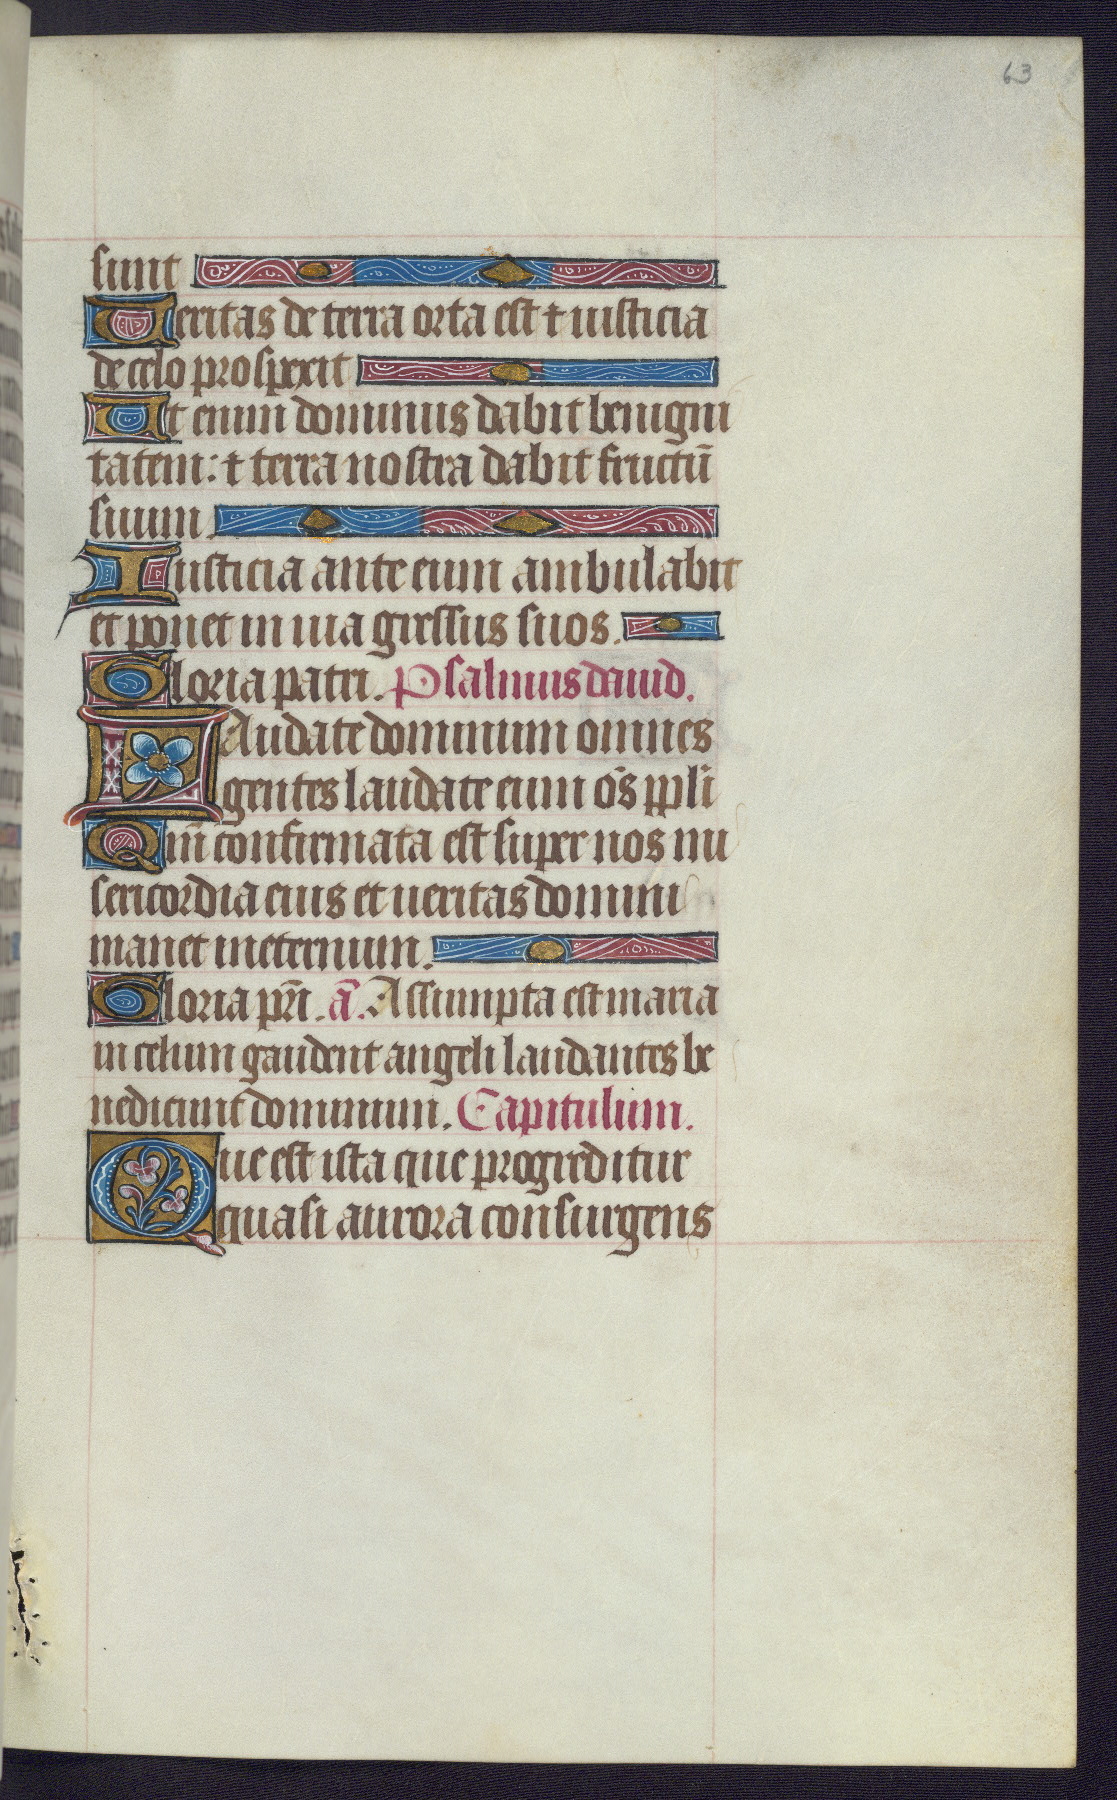 63
sunt
Ueritas de terra orta est ⁊ iusticia
de celo prospexit
Et enim dominus dabit benigni
tatem: ⁊ terra nostra dabit fructū
suum.
Iusticia ante eum ambulabit
et ponet in uia gressus suos.
Gloria patri. Psalmus dauid.
LAudate dominum omnes
gentes laudate eum oēs ppli̅
Qm̄ confirmata est super nos mi
sericordia eius et ueritas domini
manet in eternum.
Gloria pr̄i. a̅. Assumpta est maria
in celum gaudent angeli laudantes be
nedicunt dominum. Capitulum.
Que est ista que progreditur
quasi aurora consurgens